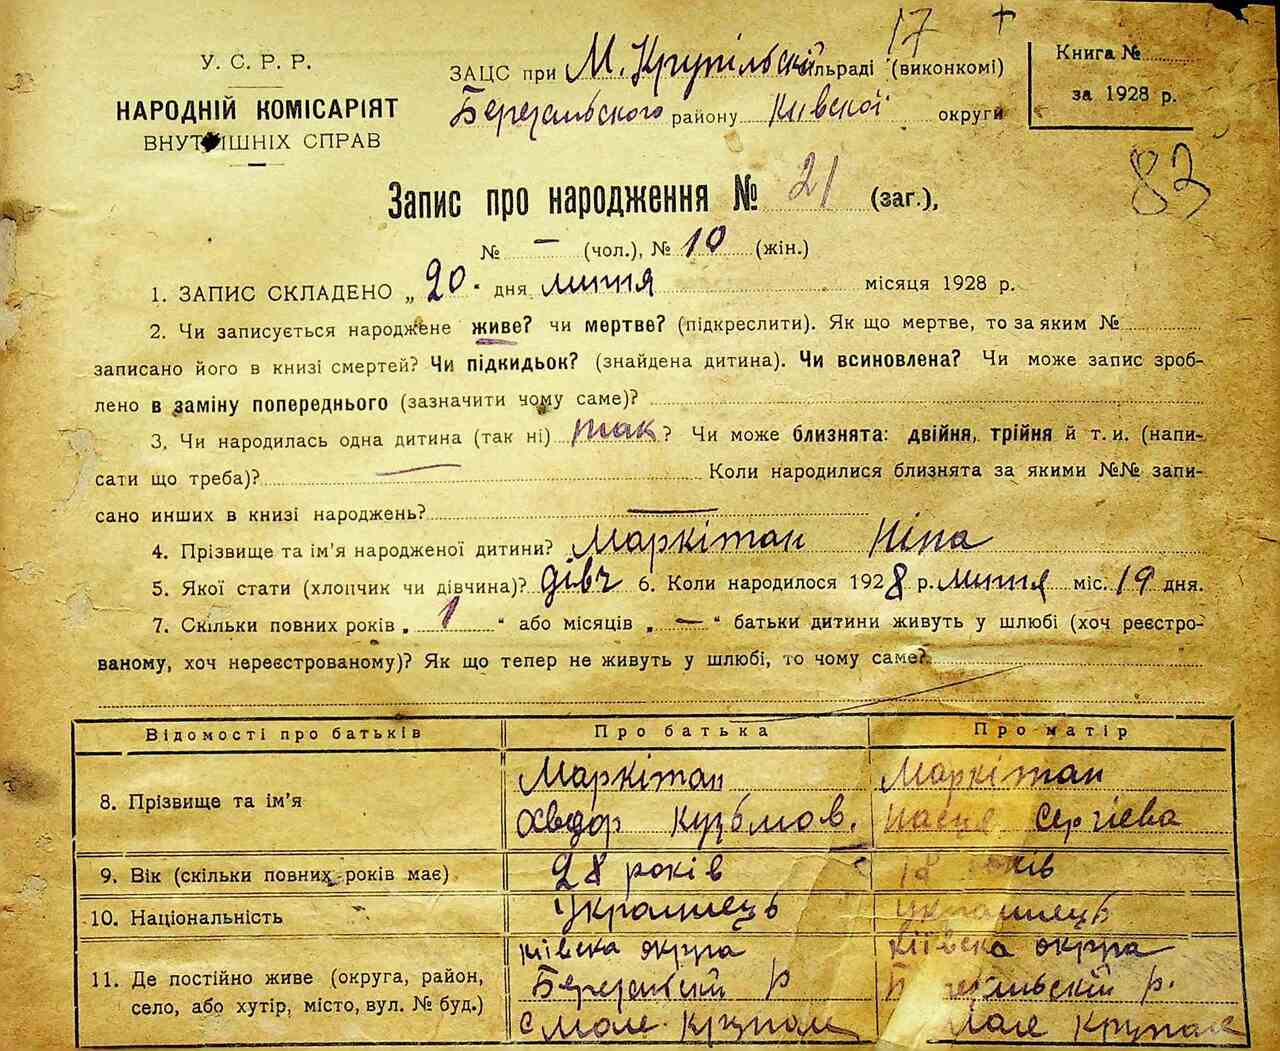 17 +
У. С. Р. Р.
НАРОДНІЙ КОМІСАРІЯТ
ВНУТРІШНІХ СПРАВ
ЗАЦС при М. Крупільскій сільраді (виконкомі)
Березаньского району Київскої округи
Книга №
за 1928 р.
83
Запис про народження № 21 (заг.),
№ — (чол.), № 10 (жін.)
1. ЗАПИС СКЛАДЕНО „20" дня липня місяця 1928 р.
2. Чи записується народжене живе? чи мертве? (підкреслити). Як що мертве, то за яким №
записано його в книзі смертей? Чи підкидьок? (знайдена дитина). Чи всиновлена? Чи може запис зроб-
лено в заміну попереднього (зазначити чому саме)?
3. Чи народилась одна дитина (так ні) так? Чи може близнята: двійня, трійня й т. и. (напи-
сати що треба)? — Коли народилися близнята за якими №№ запи-
сано инших в книзі народжень? —
4. Прізвище та ім'я народженої дитини? Маркітан Ніна
5. Якої стати (хлопчик чи дівчина)? дівч 6. Коли народилося 1928 р. липня міс. 19 дня.
7. Скільки повних років „1" або місяців „—" батьки дитини живуть у шлюбі (хоч реєстро-
ваному, хоч нереєстрованому)? Як що тепер не живуть у шлюбі, то чому саме?
Відомості про батьків Про батька Про матір
8. Прізвище та ім'я Маркітан Хведор Кузьмов. Маркітан Настя Сергієва
9. Вік (скільки повних років має) 28 років 18 років
10. Національність Українець Українець
11. Де постійно живе (округа, район, село, або хутір, місто, вул. № буд.)
Київска округа Київска округа
Березаньский р Березаньскій р.
с Мале Крупале Мале Крупале